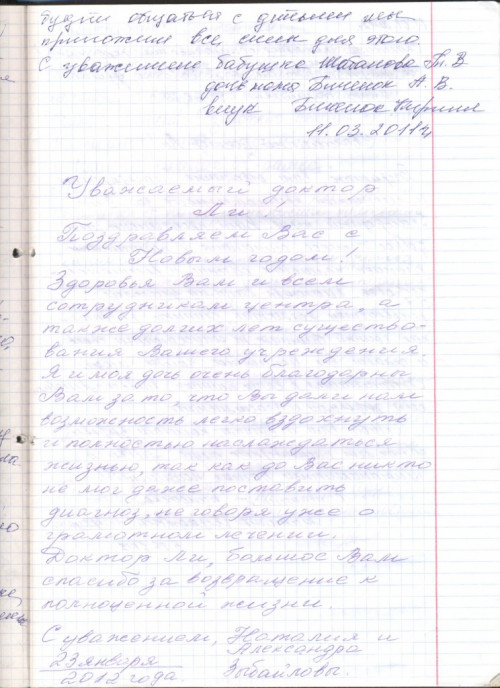 будни общаться с детьми мы
приложим все силы для этого.
С уважением бабушка Шабанова Т. В
дочь мама Биченок А. В.
внук
11.03.2011г
Уважаемый доктор
Ли!
Поздравляем Вас с
Новым годом!
Здоровья Вам и всем
сотрудникам центра, а
также долгих лет существо-
вания Вашего учреждения.
Я и моя дочь очень благодарны
Вам за то, что Вы дали нам
возможность легко вздохнуть
и полностью наслаждаться
жизнью, так как до Вас никто
не мог даже поставить
диагноз, не говоря уже о
грамотном лечении.
Доктор Ли, большое Вам
спасибо за возвращение к
полноценной жизни.
С уважением, Наталия и
Александра
Зыбайловы.
23 января
2012 года.